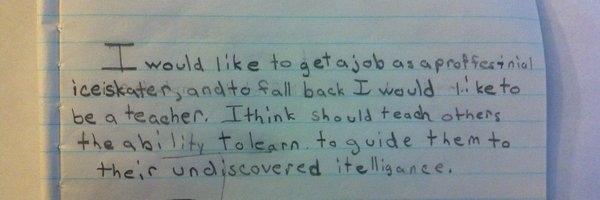 I would like to get a job as a proffestnial
iceiskater, and to fall back I would like to
be a teacher. I think should teach others
the ability to learn. to guide them to
their undiscovered itelligance.